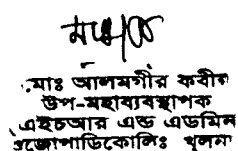 মোঃ আলমগীর কবীর
উপ-মহাব্যবস্থাপক
এইচআর এন্ড এডমিন
ওজোপাডিকোলিঃ খুলনা